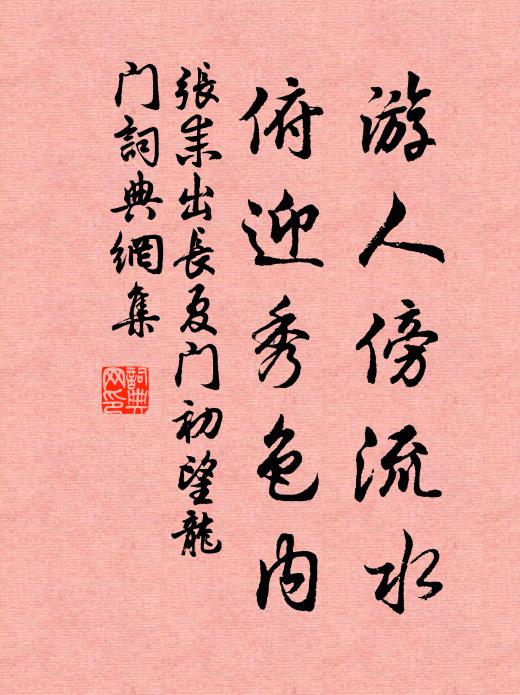 游人傍流水
俯迎秀色内
張耒出長夏门初望龍
门詞典網集
詞典网印